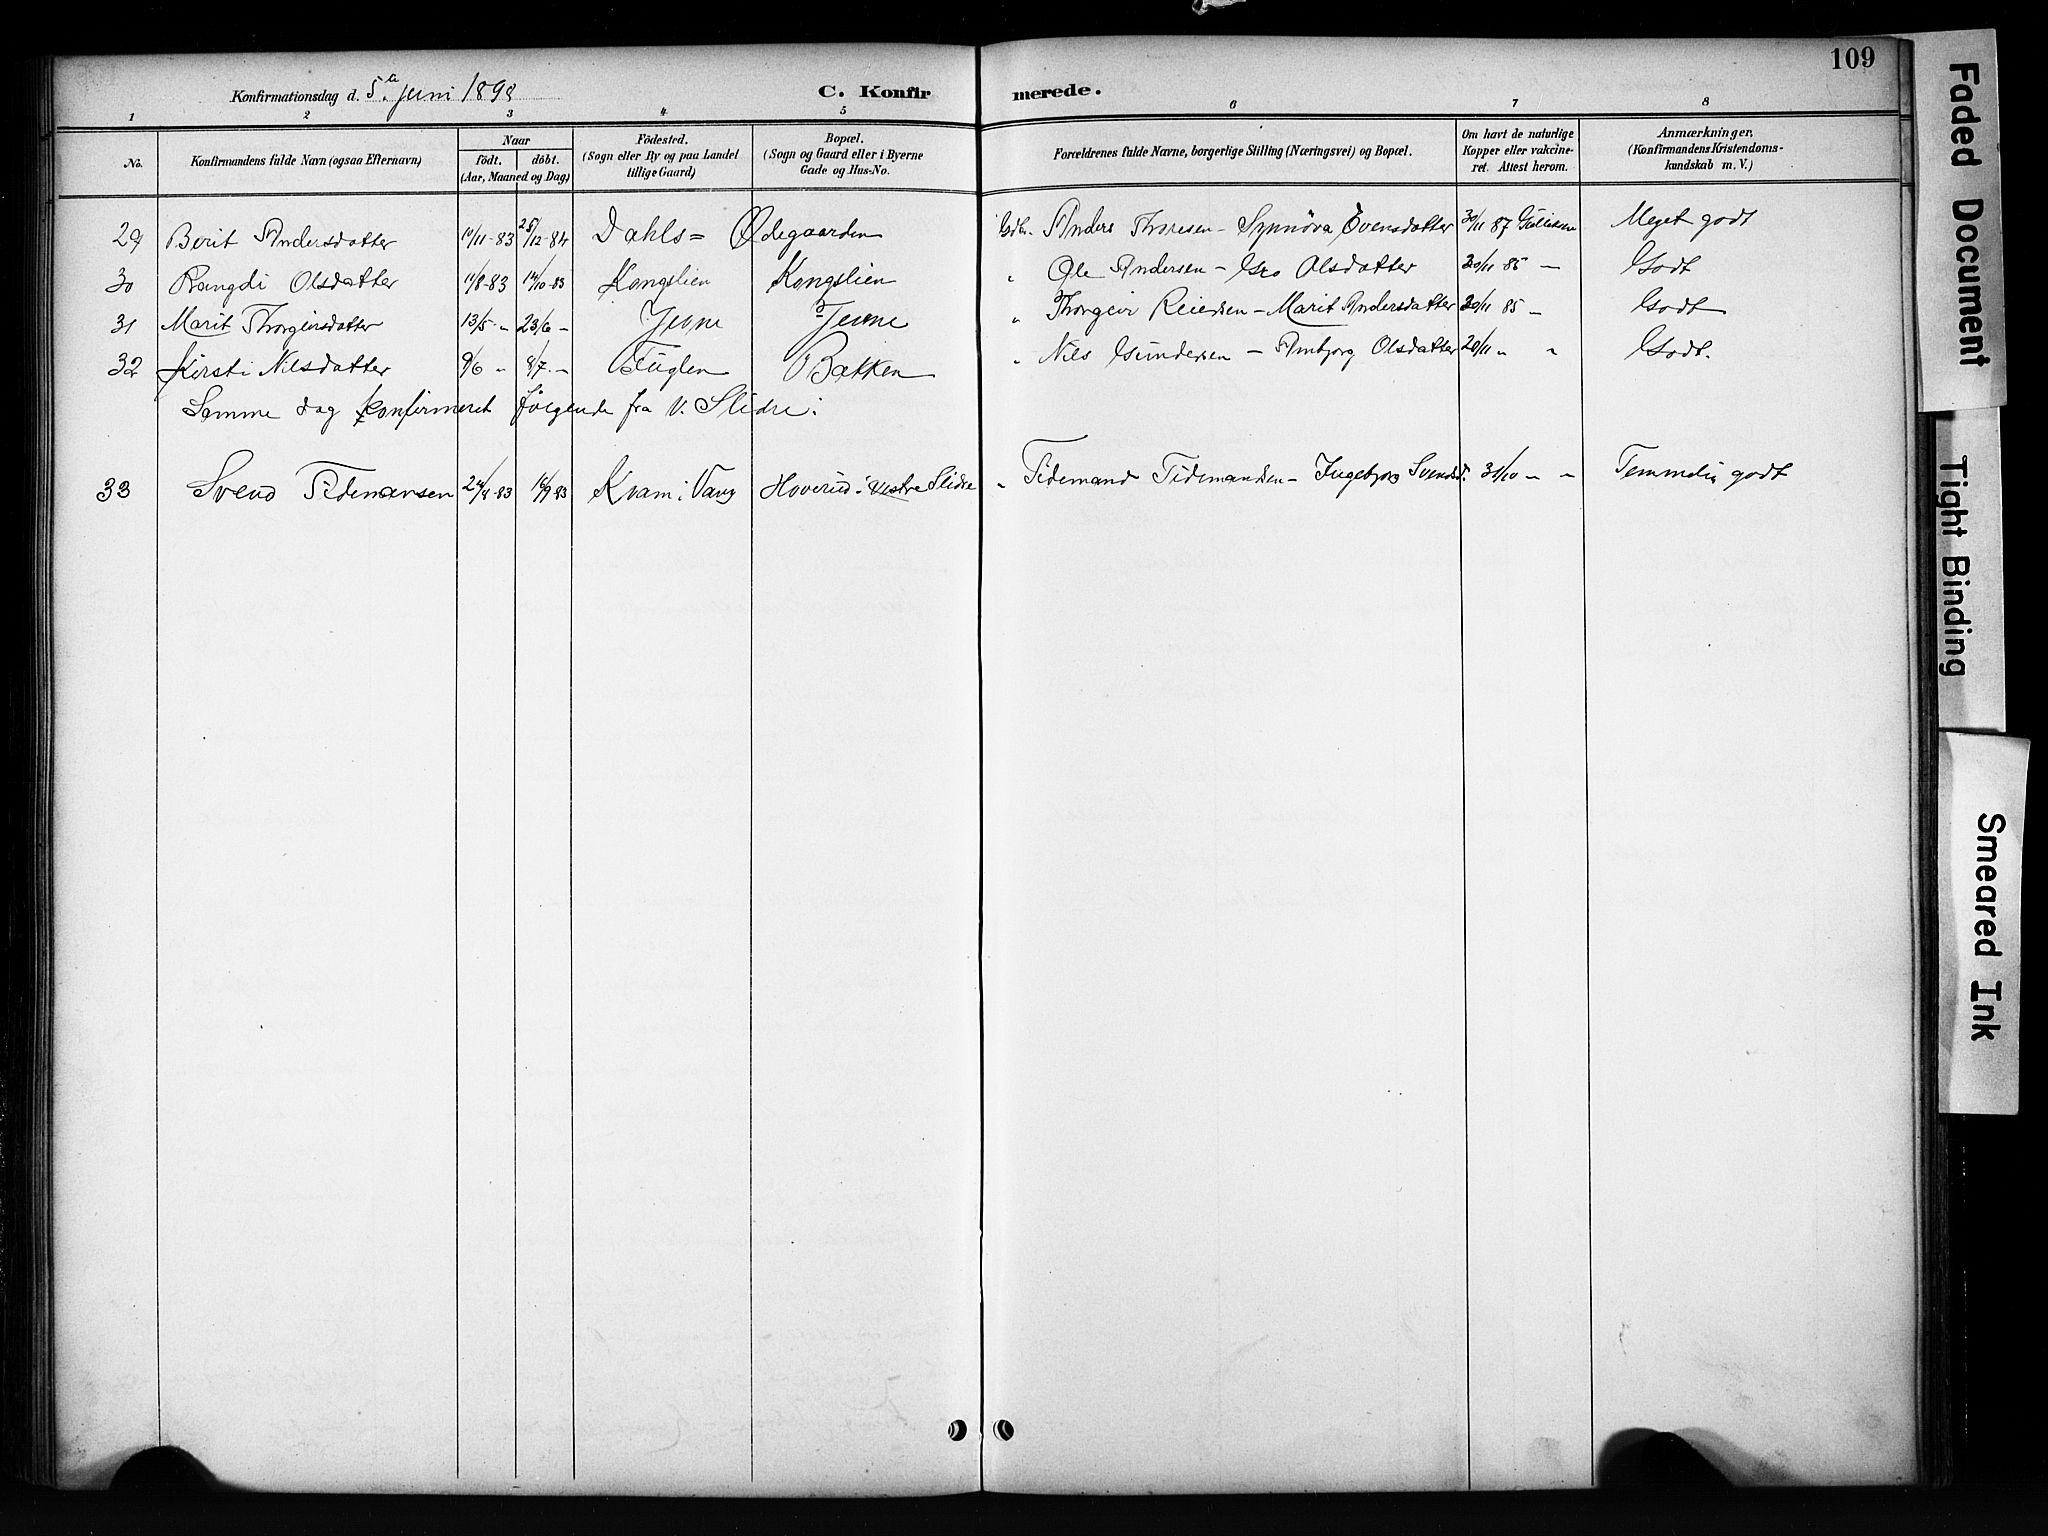 109
Konfirmationsdag d. 5te Juni 1898 C. Konfirmerede.
1 2 3 4 5 6 7 8
No.
Konfirmandens fulde Navn (ogsaa Efternavn)
Naar
födt. döbt.
(Aar, Maaned og Dag)
Födested.
(Sogn eller By og paa Landet
tillige Gaard)
Bopæl.
(Sogn og Gaard eller i Byerne
Gade og Hus-No.
Forældrenes fulde Navne, borgerlige Stilling (Næringsvei) og Bopæl.
Om havt de naturlige
Kopper eller vakcine-
ret. Attest herom.
Anmærkninger.
(Konfirmandens Kristendoms-
kundskab m. V.)
29 Berit Andersdatter 10/11-83 25/12-84 Dahls= Ødegaarden Gdbr. Anders Thoresen - Synnöva Evensdatter 30/11 87 Meget godt
30 Rangdi Olsdatter 11/8-83 14/10-83 Kongslien Kongslien " Ole Andersen - Gro Olsdatter 30/11 85 - Godt
31 Marit Thorgeirsdatter 13/5 - 23/6 - Jevne Jevne " Thorgeir Reiersen - Marit Andersdatter 30/11 85 - Godt
32 Kirsti Nilsdatter 9/6 - 8/7 - Fuglen Bakken " Nils Gundersen - Ambjörg Olsdatter 20/11 " " Godt.
Samme dag konfirmeret følgende fra V. Slidre:
33 Svend Tidemansen 24/8-83 16/9-83 Kvam i Vang Hoverud i Vestre Slidre " Tidemand Tidemandsen - Ingebjorg Svendsd. 31/10 " " Temmelig godt
Faded Document
Tight Binding
Smeared Ink